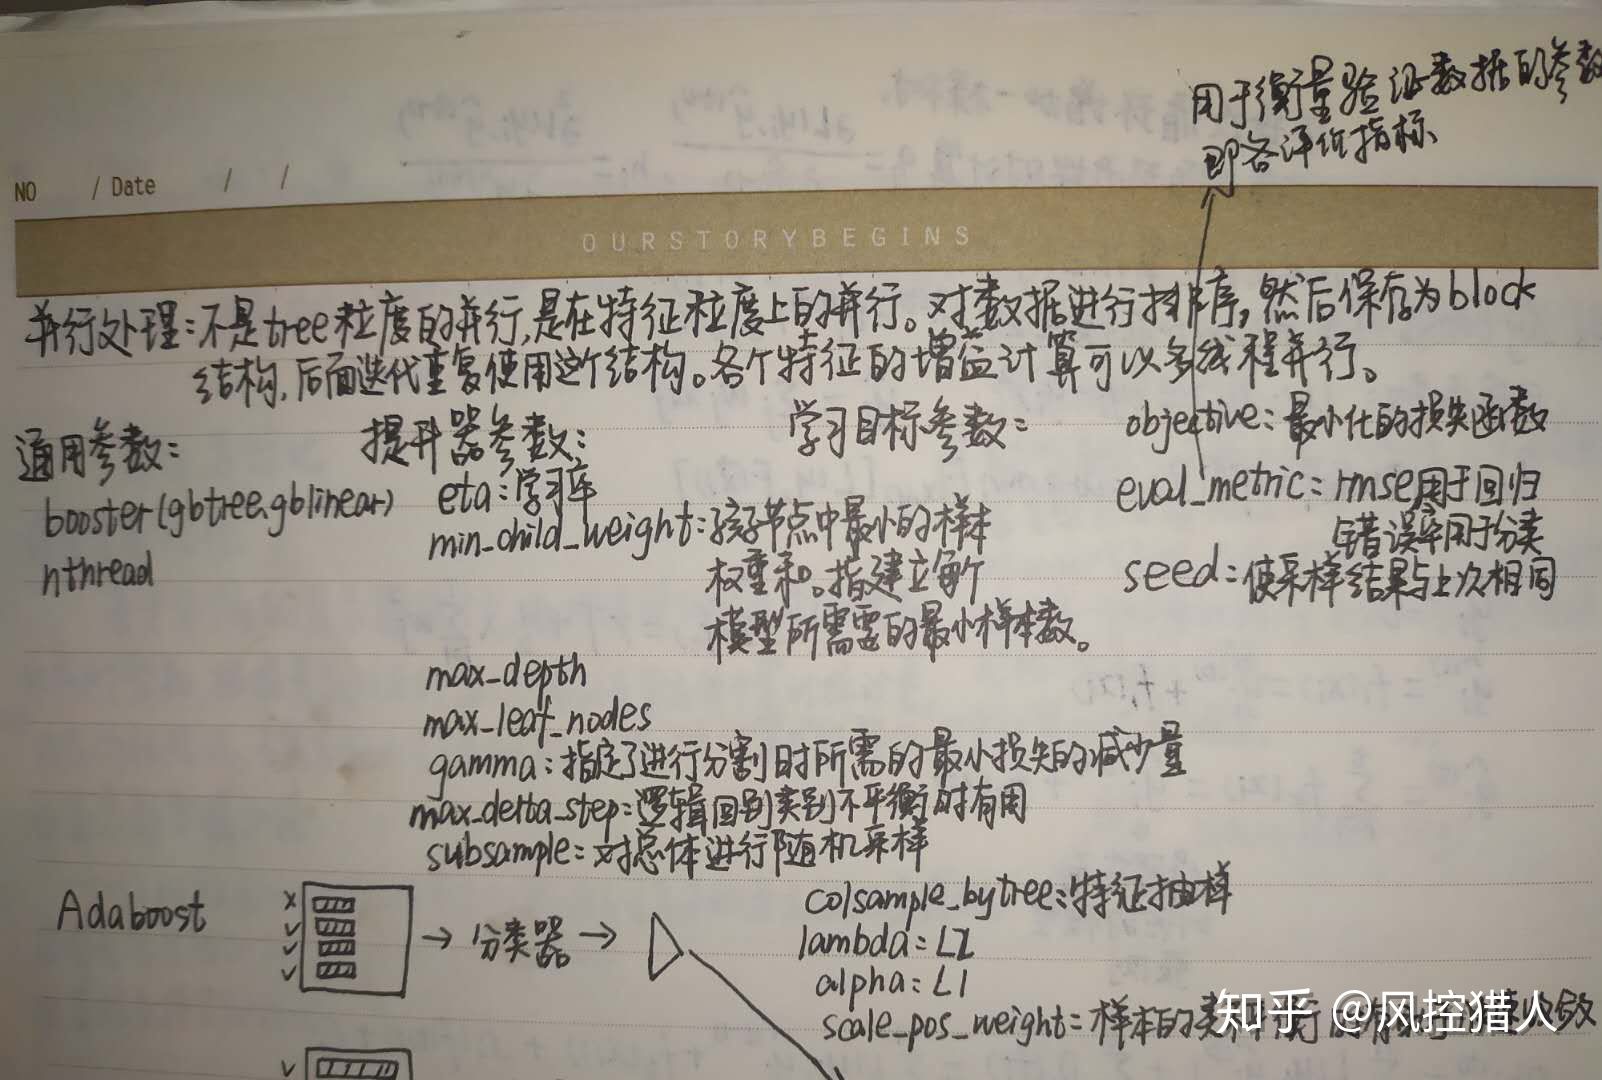 用于衡量验证数据的参数
即各评价指标
NO / Date / /
OURSTORYBEGINS
并行处理:不是tree粒度的并行,是在特征粒度上的并行。对数据进行排序,然后保存为block
结构,后面迭代重复使用这个结构。各个特征的增益计算可以多线程并行。
通用参数:
booster(gbtree、gblinear)
nthread
提升器参数:
eta:学习率
min_child_weight:孩子节点中最小的样本
权重和。指建立每个
模型所需要的最小样本数。
max_depth
max_leaf_nodes
gamma:指定了进行分割时所需的最小损失的减少量
max_delta_step:逻辑回归类别不平衡时有用
subsample:对总体进行随机采样
colsample_bytree:特征抽样
lambda:L2
alpha:L1
scale_pos_weight:样本的类
学习目标参数:
objective:最小化的损失函数
eval_metric:rmse用于回归
错误率用于分类
seed:使采样结果与上次相同
Adaboost
× ✓ ✓ ✓ → 分类器 →
✓
知乎 @风控猎人